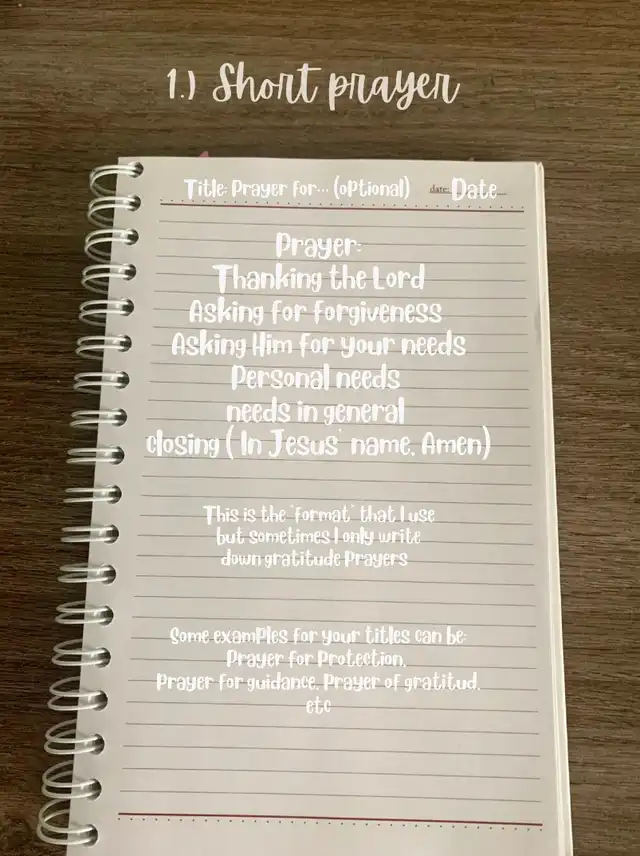 1.) Short prayer
Title: Prayer for... (optional) date: Date
Prayer:
Thanking the Lord
Asking for forgiveness
Asking Him for your needs
Personal needs
needs in general
closing ( In Jesus' name, Amen)
This is the "format" that I use
but sometimes I only write
down gratitude prayers
Some examples for your titles can be:
Prayer for Protection,
Prayer for guidance, Prayer of gratitud,
etc